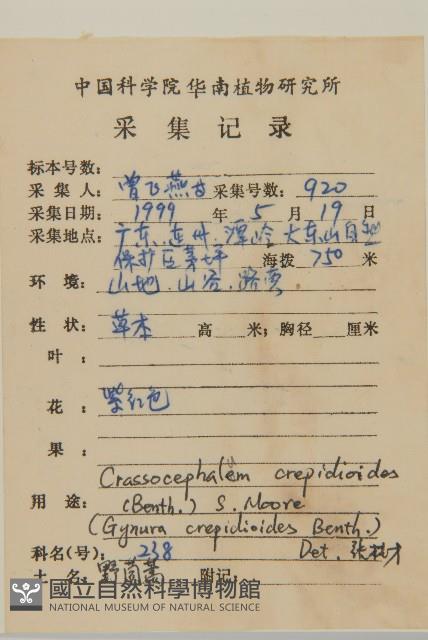 中国科学院华南植物研究所
采集记录
标本号数：
采集人：曾飞燕 采集号数：920
采集日期：1999年5月19日
采集地点：广东、连州、潭岭 大东山自然
保护区茅坪 海拨 750 米
环境：山地、山谷、路旁
性状：草本 高 米；胸径 厘米
叶：
花：紫红色
果：
Crassocephalum crepidioides
用途：(Benth.) S. Moore
(Gynura crepidioides Benth.)
科名(号)：238 Det. 张
土名：野茼蒿 附记：
國立自然科學博物館
NATIONAL MUSEUM OF NATURAL SCIENCE